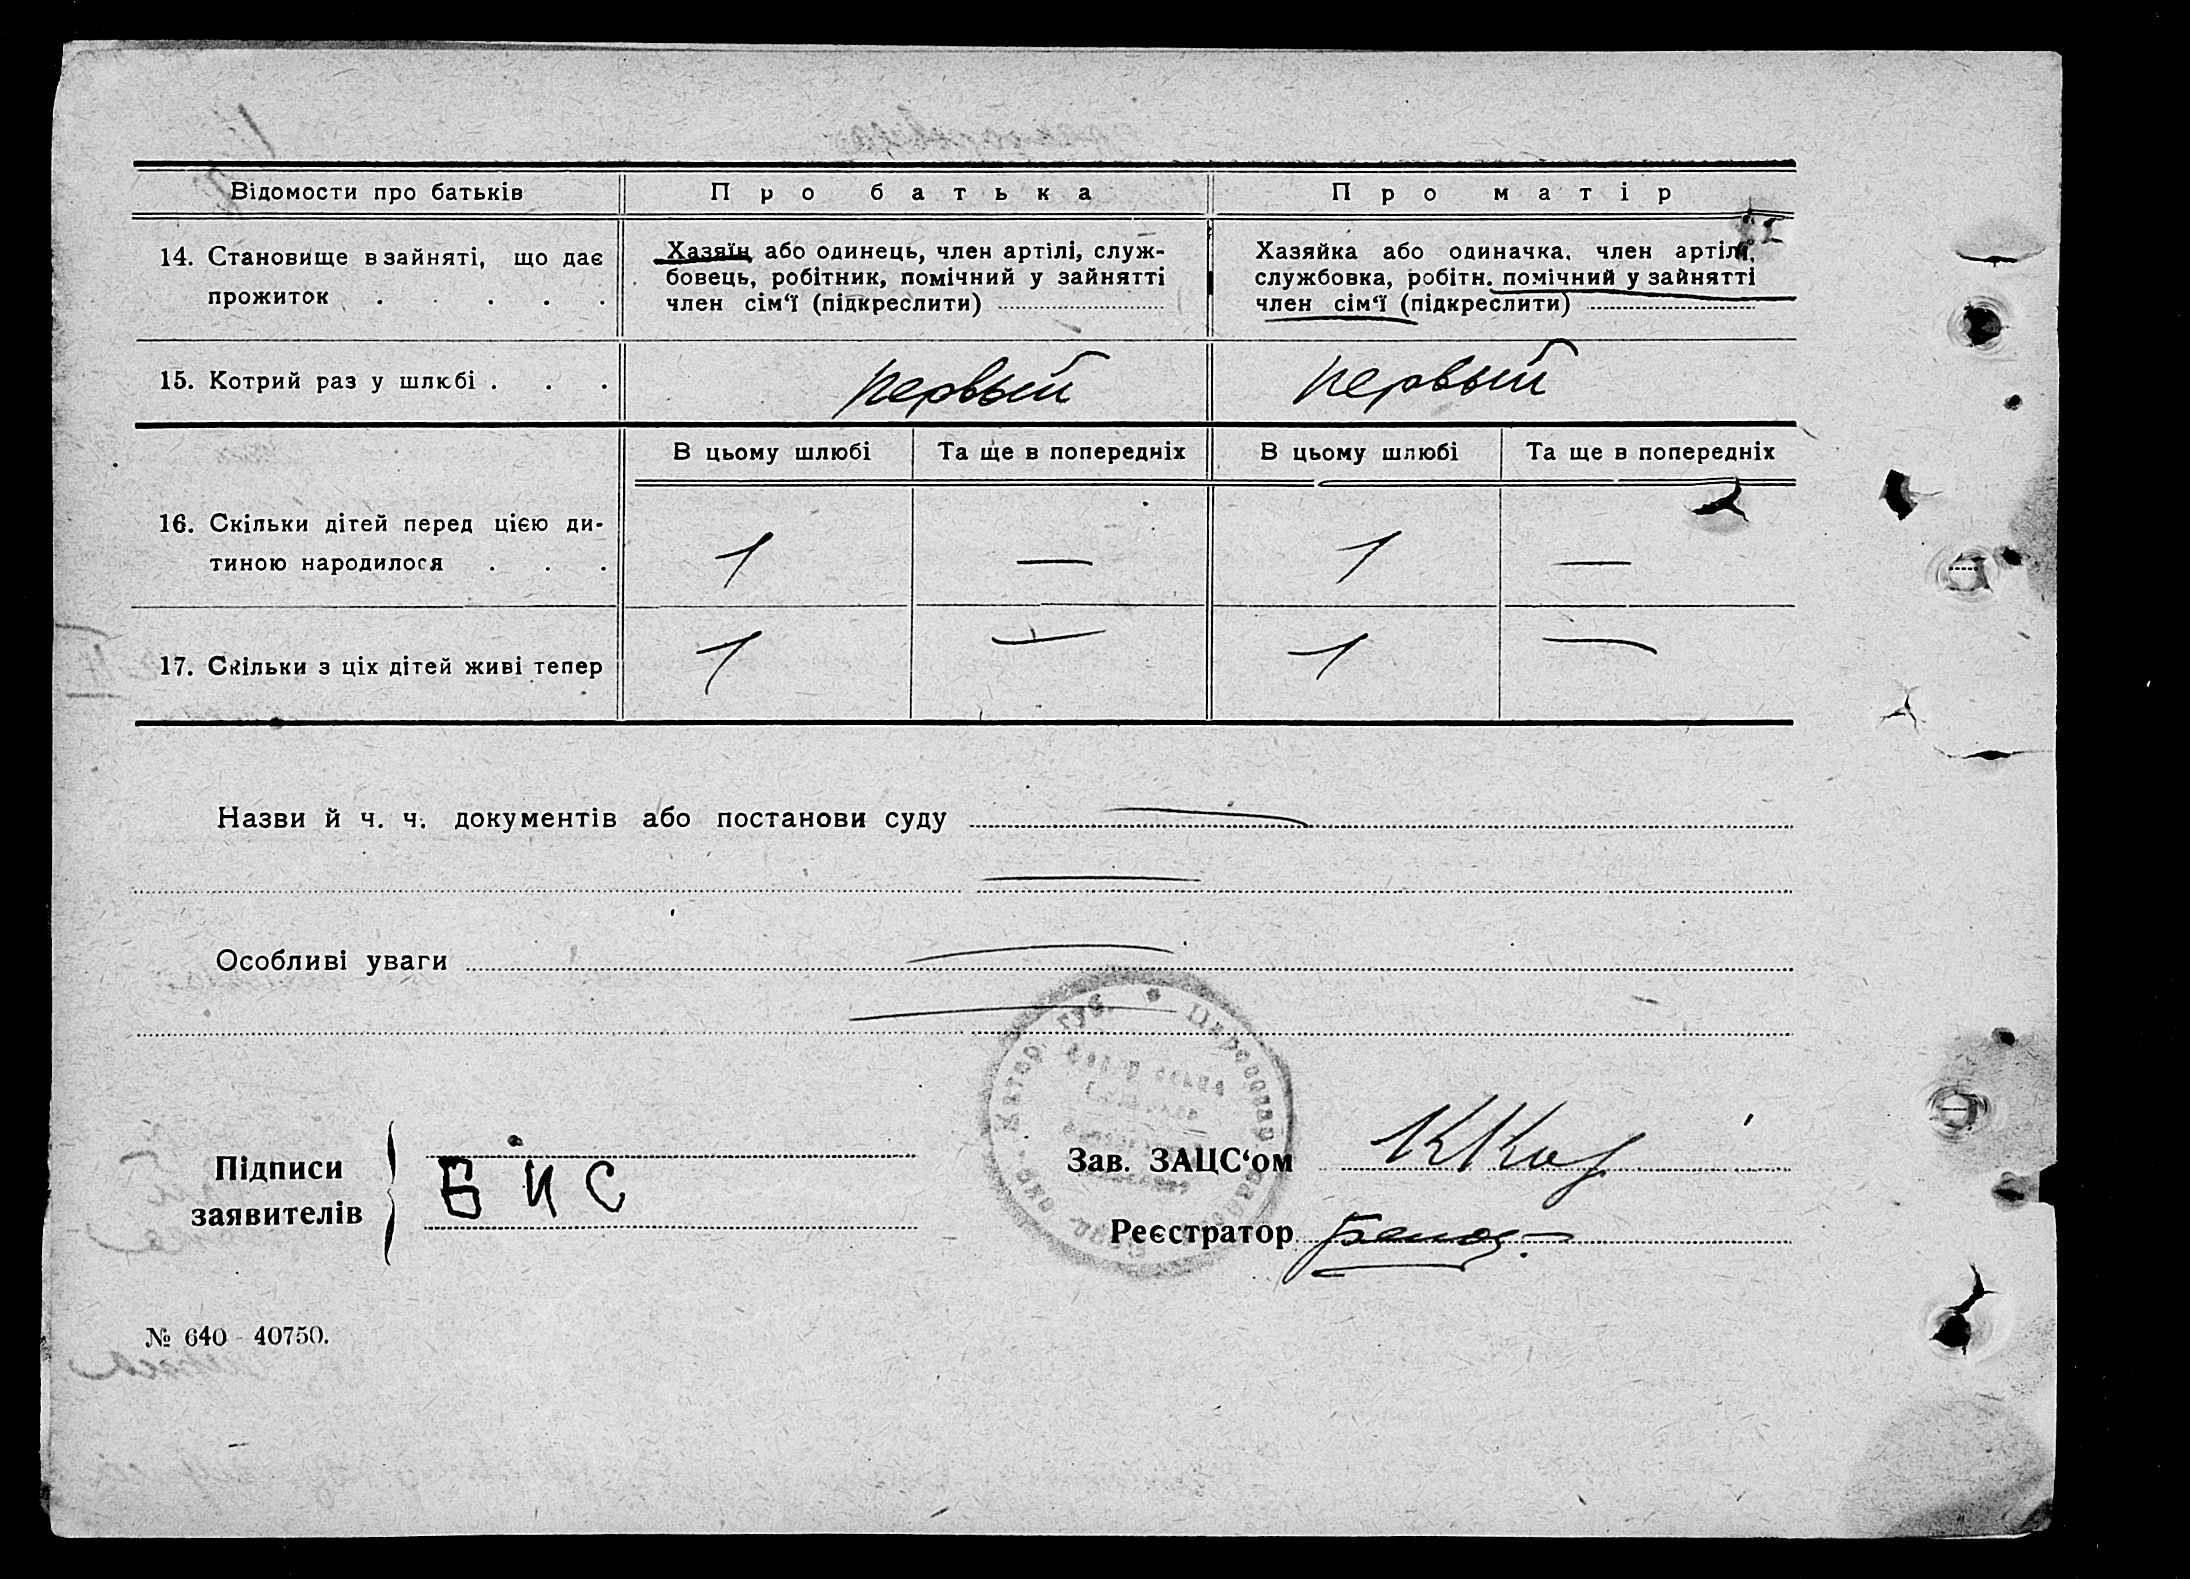 Відомости про батьків
Про батька
Про матір
14. Становище в зайняті, що дає
прожиток . . . . .
Хазяїн або одинець, член артілі, служ-
бовець, робітник, помічний у зайнятті
член сім‘ї (підкреслити)
Хазяйка або одиначка, член артілі,
службовка, робітн. помічний у зайнятті
член сім‘ї (підкреслити)
15. Котрий раз у шлюбі . . .
первый
первый
В цьому шлюбі
Та ще в попередніх
В цьому шлюбі
Та ще в попередніх
16. Скільки дітей перед цією ди-
тиною народилося . . .
1
—
1
—
17. Скільки з ціх дітей живі тепер
1
—
1
—
Назви й ч. ч. документів або постанови суду —
—
Особливі уваги —
—
Підписи
заявителів
Бис
Зав. ЗАЦС‘ом
Реєстратор
№ 640 - 40750.